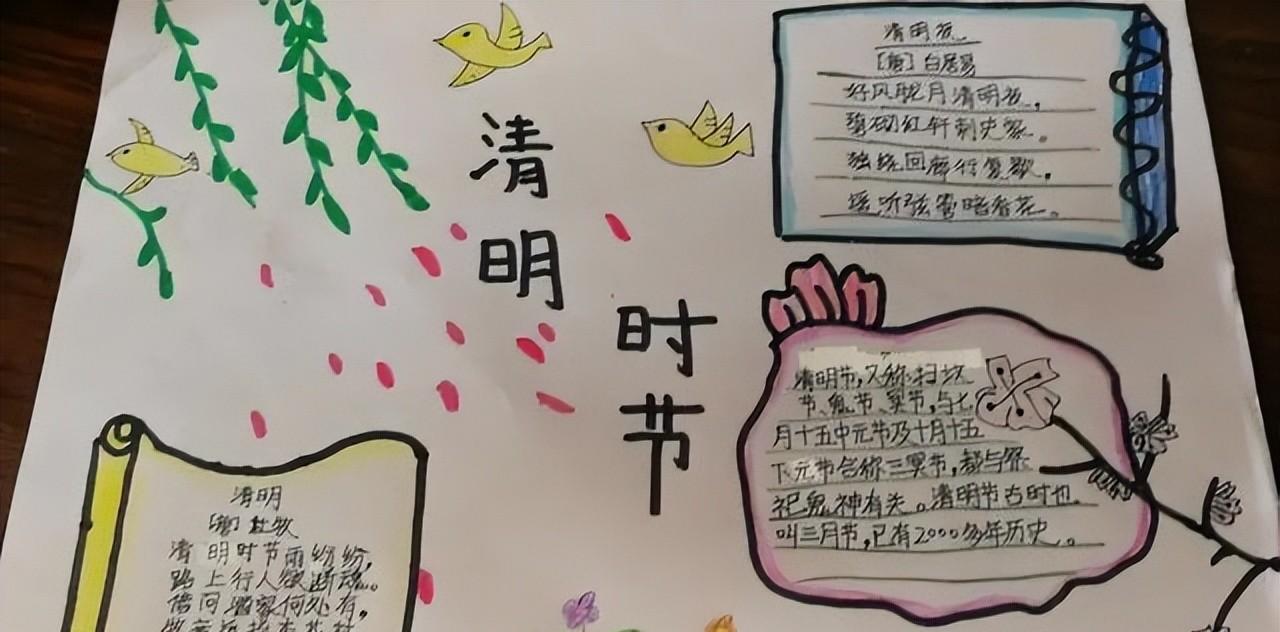 清明
时节
清明夜
[唐] 白居易
好风胧月清明夜,
碧砌红轩刺史家。
独绕回廊行复歇,
遥听弦管暗看花。
清明节,又称扫坟
节、鬼节、冥节,与七
月十五中元节及十月十五
下元节合称三冥节,都与祭
祀鬼神有关。清明节古时也
叫三月节,已有2000多年历史。
清明
[唐] 杜牧
清明时节雨纷纷,
路上行人欲断魂。
借问酒家何处有,